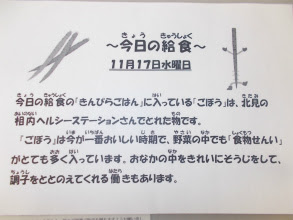 ～今日の給食～
11月17日水曜日
今日の給食の「きんぴらごはん」に入っている「ごぼう」は、北見の
相内ヘルシーステーションさんでとれた物です。
「ごぼう」は今が一番おいしい時期で、野菜の中でも「食物せんい」
がとても多く入っています。おなかの中をきれいにそうじをして、
調子をととのえてくれる働きもあります。